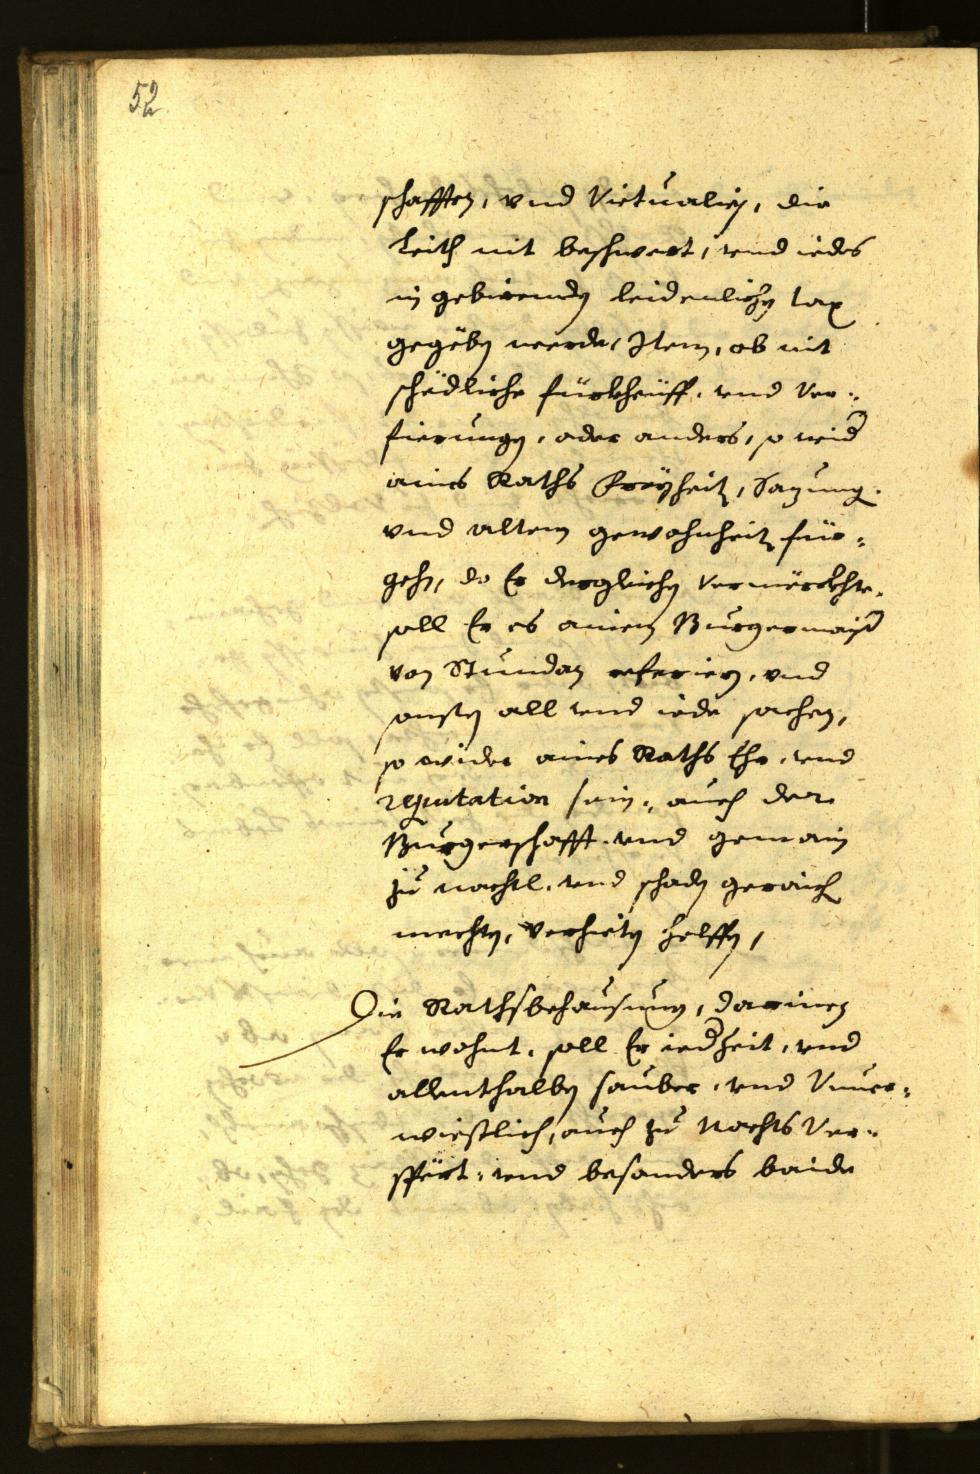 52
schafften, vnd Victualien, die
Leith nit beschwert, vnd iedes
in gebirenden leidenlichen tax
gegeben werde, Item, ob nit
schedliche fürkheüff, vnd Ver=
fierungen, oder anders, so wid
aines Raths Freyheit, Sazung
vnd altem gewohnheit für=
gehn, da Er dergleichen vermörckhte,
soll Er es ainem Burgermaist
von Stundan referiern, vnd
onsten all vnd iede sachen,
so wider aines Raths Ehr, vnd
reputation sein, auch der
Burgerschafft vnd gemain
zu nachtl. vnd schaden geraich
mechten, verhieten helffen,
Die Rathsbehausung, darinen
Er wohnt, soll Er iedzeit, vnd
allenthalben sauber, vnd Vnuer=
wiestlich, auch zu Nachts Ver=
spört, vnd besonders baide